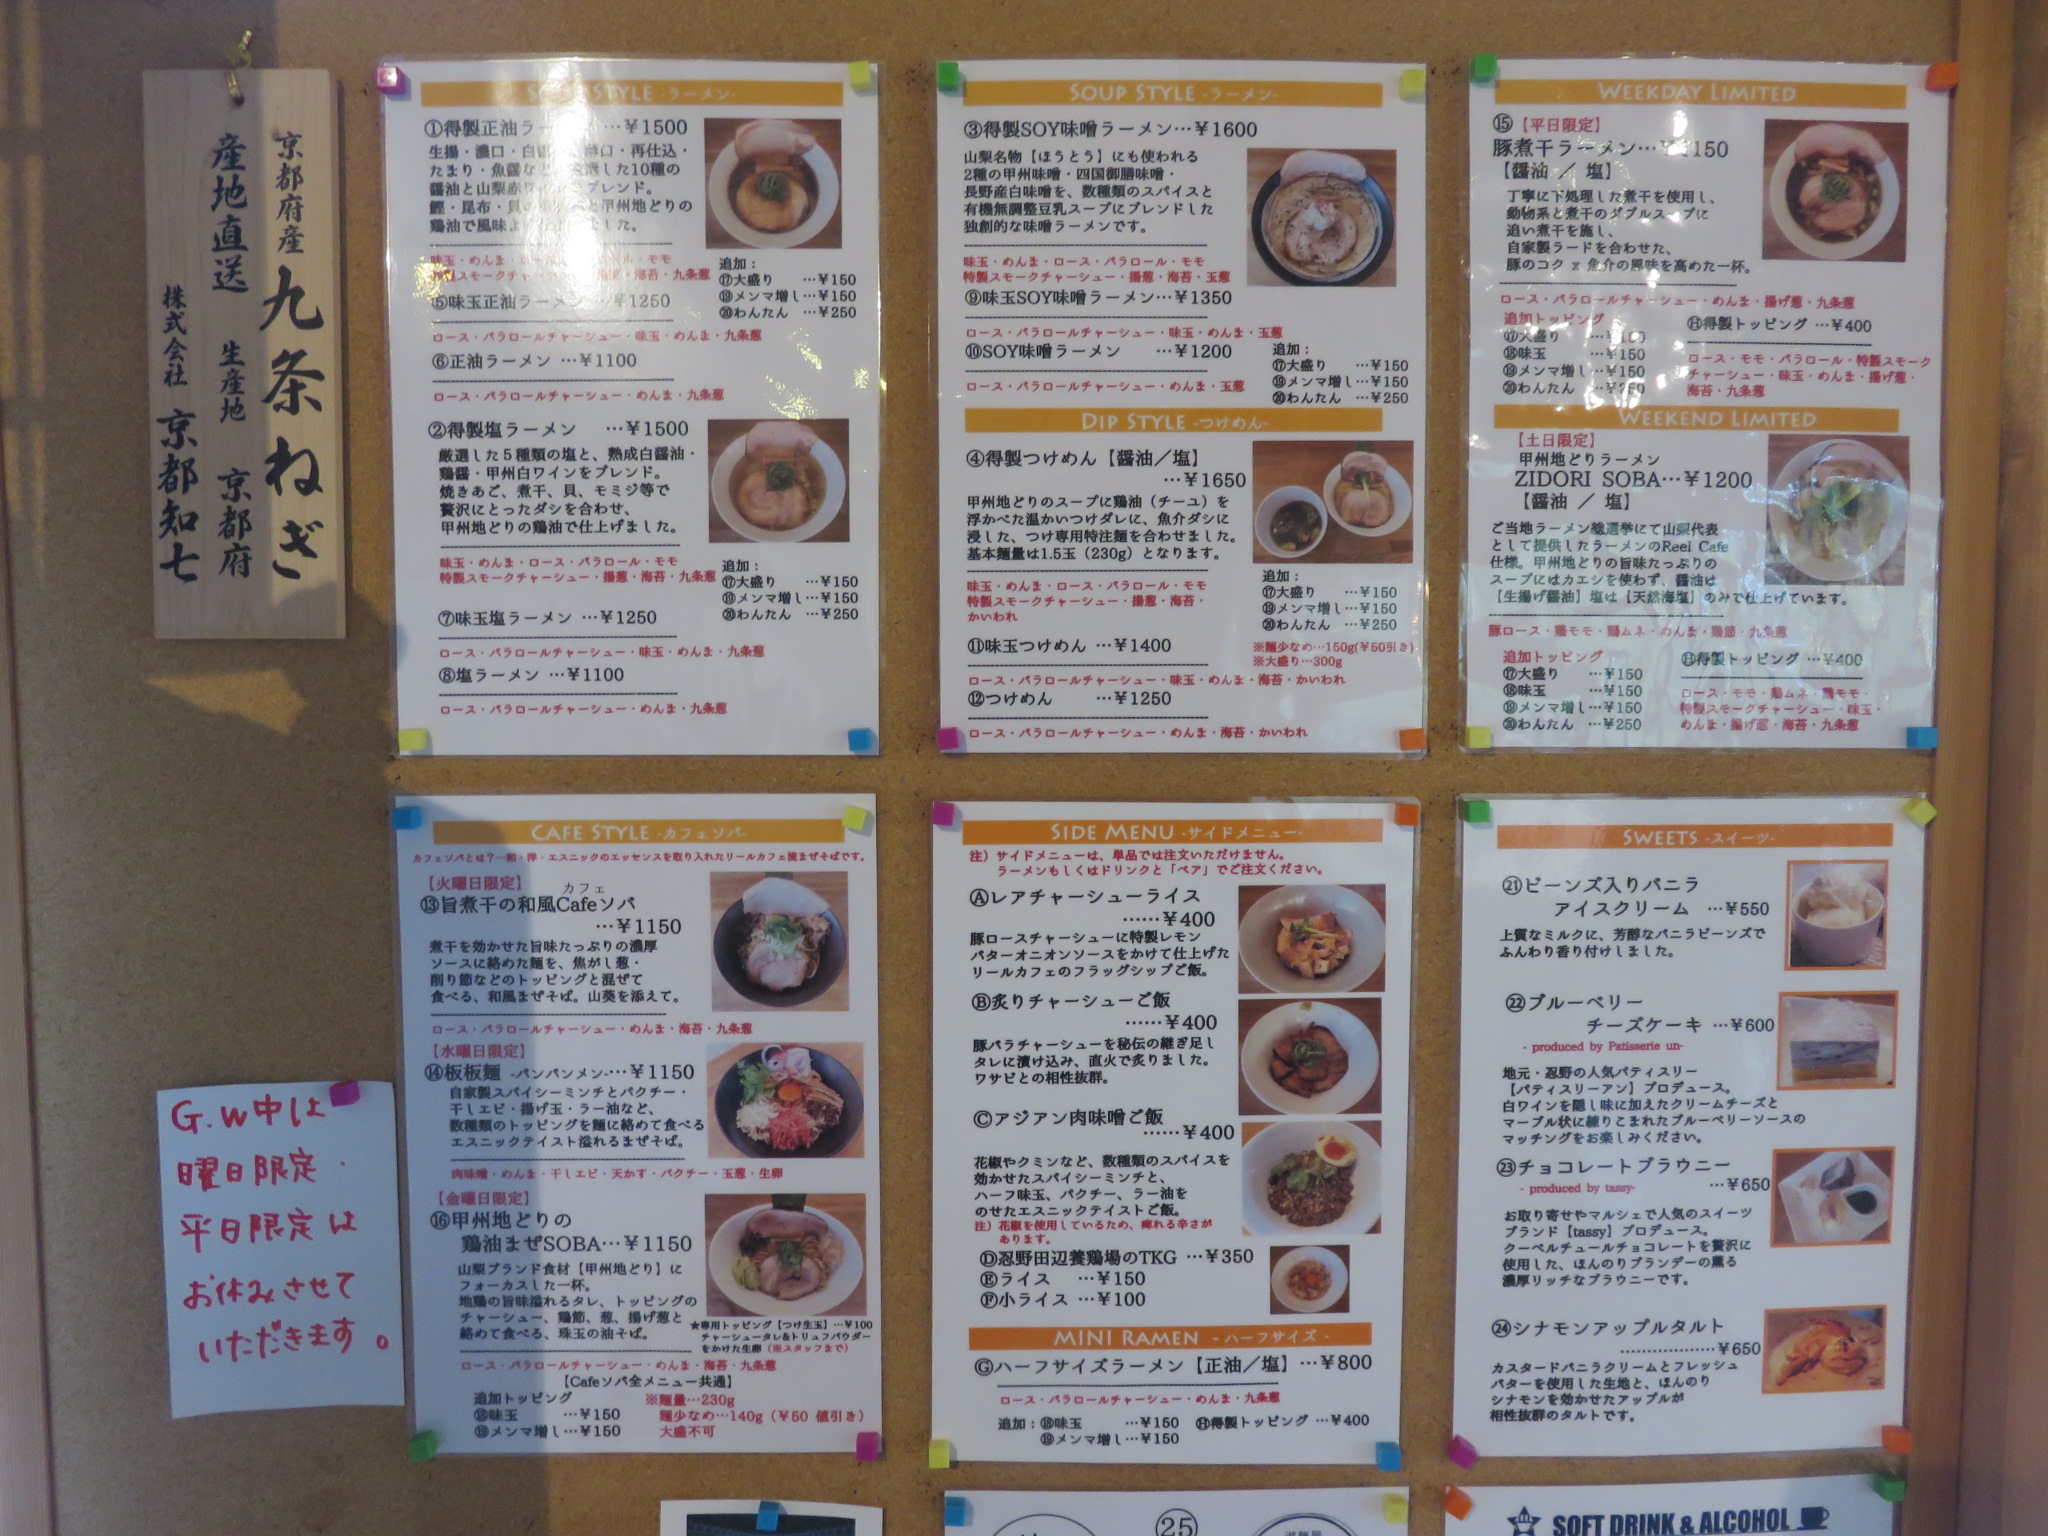 京都府産 九条ねぎ
産地直送 生産地 京都府
株式会社 京都知七
G.W中は
曜日限定・
平日限定は
お休みさせて
いただきます。
STYLE -ラーメン-
①得製正油ラー …¥1500
生揚・濃口・白 口・再仕込・
たまり・魚醤など、 した10種の
醤油と山梨赤ワ ブレンド。
鰹・昆布・貝 と甲州地どりの
鶏油で風味よ ました。
味玉・めんま・ロース・バラロール・モモ
特製スモークチャーシュー・揚葱・海苔・九条葱
⑤味玉正油ラーメン …¥1250
ロース・バラロールチャーシュー・味玉・めんま・九条葱
⑥正油ラーメン …¥1100
ロース・バラロールチャーシュー・めんま・九条葱
追加:
⑰大盛り …¥150
⑲メンマ増し…¥150
⑳わんたん …¥250
②得製塩ラーメン …¥1500
厳選した5種類の塩と、熟成白醤油・
鶏醤・甲州白ワインをブレンド。
焼きあご、煮干、貝、モミジ等で
贅沢にとったダシを合わせ、
甲州地どりの鶏油で仕上げました。
味玉・めんま・ロース・バラロール・モモ
特製スモークチャーシュー・揚葱・海苔・九条葱
⑦味玉塩ラーメン …¥1250
ロース・バラロールチャーシュー・味玉・めんま・九条葱
⑧塩ラーメン …¥1100
ロース・バラロールチャーシュー・めんま・九条葱
追加:
⑰大盛り …¥150
⑲メンマ増し…¥150
⑳わんたん …¥250
SOUP STYLE -ラーメン-
③得製SOY味噌ラーメン…¥1600
山梨名物【ほうとう】にも使われる
2種の甲州味噌・四国御膳味噌・
長野産白味噌を、数種類のスパイスと
有機無調整豆乳スープにブレンドした
独創的な味噌ラーメンです。
味玉・めんま・ロース・バラロール・モモ
特製スモークチャーシュー・揚葱・海苔・玉葱
⑨味玉SOY味噌ラーメン…¥1350
ロース・バラロールチャーシュー・味玉・めんま・玉葱
⑩SOY味噌ラーメン …¥1200
ロース・バラロールチャーシュー・めんま・玉葱
追加:
⑰大盛り …¥150
⑲メンマ増し…¥150
⑳わんたん …¥250
DIP STYLE -つけめん-
④得製つけめん【醤油/塩】
…¥1650
甲州地どりのスープに鶏油(チーユ)を
浮かべた温かいつけダレに、魚介ダシに
浸した、つけ専用特注麺を合わせました。
基本麺量は1.5玉(230g)となります。
味玉・めんま・ロース・バラロール・モモ
特製スモークチャーシュー・揚葱・海苔・
かいわれ
⑪味玉つけめん …¥1400
ロース・バラロールチャーシュー・味玉・めんま・海苔・かいわれ
⑫つけめん …¥1250
ロース・バラロールチャーシュー・めんま・海苔・かいわれ
追加:
⑰大盛り …¥150
⑲メンマ増し…¥150
⑳わんたん …¥250
※麺少なめ…150g(¥50引き)
※大盛り…300g
WEEKDAY LIMITED
⑮【平日限定】
豚煮干ラーメン…¥1150
【醤油 / 塩】
丁寧に下処理した煮干を使用し、
動物系と煮干のダブルスープに
追い煮干を施し、
自家製ラードを合わせた、
豚のコク x 魚介の風味を高めた一杯。
ロース・バラロールチャーシュー・めんま・揚げ葱・九条葱
追加トッピング
⑰大盛り …¥150
⑱味玉 …¥150
⑲メンマ増し…¥150
⑳わんたん …¥250
Ⓗ得製トッピング …¥400
ロース・モモ・バラロール・特製スモーク
チャーシュー・味玉・めんま・揚げ葱・
海苔・九条葱
WEEKEND LIMITED
【土日限定】
甲州地どりラーメン
ZIDORI SOBA…¥1200
【醤油 / 塩】
ご当地ラーメン総選挙にて山梨代表
として提供したラーメンのReel Cafe
仕様。甲州地どりの旨味たっぷりの
スープにはカエシを使わず、醤油は
【生揚げ醤油】塩は【天然海塩】のみで仕上げています。
豚ロース・鶏モモ・鶏ムネ・めんま・鶏節・九条葱
追加トッピング
⑰大盛り …¥150
⑱味玉 …¥150
⑲メンマ増し…¥150
⑳わんたん …¥250
Ⓗ得製トッピング …¥400
ロース・モモ・鶏ムネ・鶏モモ・
特製スモークチャーシュー・味玉・
めんま・揚げ葱・海苔・九条葱
CAFE STYLE -カフェソバ-
カフェソバとは?…和・洋・エスニックのエッセンスを取り入れたリールカフェ流まぜそばです。
【火曜日限定】
カフェ
⑬旨煮干の和風Cafeソバ
…¥1150
煮干を効かせた旨味たっぷりの濃厚
ソースに絡めた麺を、焦がし葱・
削り節などのトッピングと混ぜて
食べる、和風まぜそば。山葵を添えて。
ロース・バラロールチャーシュー・めんま・海苔・九条葱
【水曜日限定】
⑭板板麺 -バンバンメン-…¥1150
自家製スパイシーミンチとパクチー・
干しエビ・揚げ玉・ラー油など、
数種類のトッピングを麺に絡めて食べる
エスニックテイスト溢れるまぜそば。
肉味噌・めんま・干しエビ・天かす・パクチー・玉葱・生卵
【金曜日限定】
⑯甲州地どりの
鶏油まぜSOBA…¥1150
山梨ブランド食材【甲州地どり】に
フォーカスした一杯。
地鶏の旨味溢れるタレ、トッピングの
チャーシュー、鶏節、葱、揚げ葱と
絡めて食べる、珠玉の油そば。
★専用トッピング【つけ生玉】…¥100
チャーシュータレ&トリュフパウダー
をかけた生卵(※スタッフまで)
ロース・バラロールチャーシュー・めんま・海苔・九条葱
【Cafeソバ全メニュー共通】
追加トッピング
⑱味玉 …¥150
⑲メンマ増し…¥150
※麺量…230g
麺少なめ…140g(¥50 値引き)
大盛不可
SIDE MENU -サイドメニュー-
注)サイドメニューは、単品では注文いただけません。
ラーメンもしくはドリンクと「ペア」でご注文ください。
Ⓐレアチャーシューライス
……¥400
豚ロースチャーシューに特製レモン
バターオニオンソースをかけて仕上げた
リールカフェのフラッグシップご飯。
Ⓑ炙りチャーシューご飯
……¥400
豚バラチャーシューを秘伝の継ぎ足し
タレに漬け込み、直火で炙りました。
ワサビとの相性抜群。
Ⓒアジアン肉味噌ご飯
……¥400
花椒やクミンなど、数種類のスパイスを
効かせたスパイシーミンチと、
ハーフ味玉、パクチー、ラー油を
のせたエスニックテイストご飯。
注)花椒を使用しているため、痺れる辛さが
あります。
Ⓓ忍野田辺養鶏場のTKG …¥350
Ⓔライス …¥150
Ⓕ小ライス …¥100
MINI RAMEN -ハーフサイズ-
Ⓖハーフサイズラーメン【正油/塩】…¥800
ロース・バラロールチャーシュー・めんま・九条葱
追加:⑱味玉 …¥150 Ⓗ得製トッピング …¥400
⑲メンマ増し…¥150
SWEETS -スイーツ-
㉑ビーンズ入りバニラ
アイスクリーム …¥550
上質なミルクに、芳醇なバニラビーンズで
ふんわり香り付けしました。
㉒ブルーベリー
チーズケーキ …¥600
- produced by Patisserie un-
地元・忍野の人気パティスリー
【パティスリーアン】プロデュース。
白ワインを隠し味に加えたクリームチーズと
マーブル状に練りこまれたブルーベリーソースの
マッチングをお楽しみください。
㉓チョコレートブラウニー
- produced by tassy- …¥650
お取り寄せやマルシェで人気のスイーツ
ブランド【tassy】プロデュース。
クーベルチュールチョコレートを贅沢に
使用した、ほんのりブランデーの薫る
濃厚リッチなブラウニーです。
㉔シナモンアップルタルト
………………¥650
カスタードバニラクリームとフレッシュ
バターを使用した生地と、ほんのり
シナモンを効かせたアップルが
相性抜群のタルトです。
25
SOFT DRINK & ALCOHOL